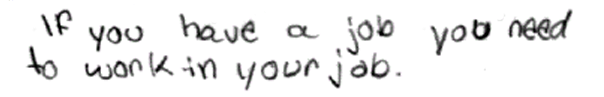 If you have a job you need
to work in your job.